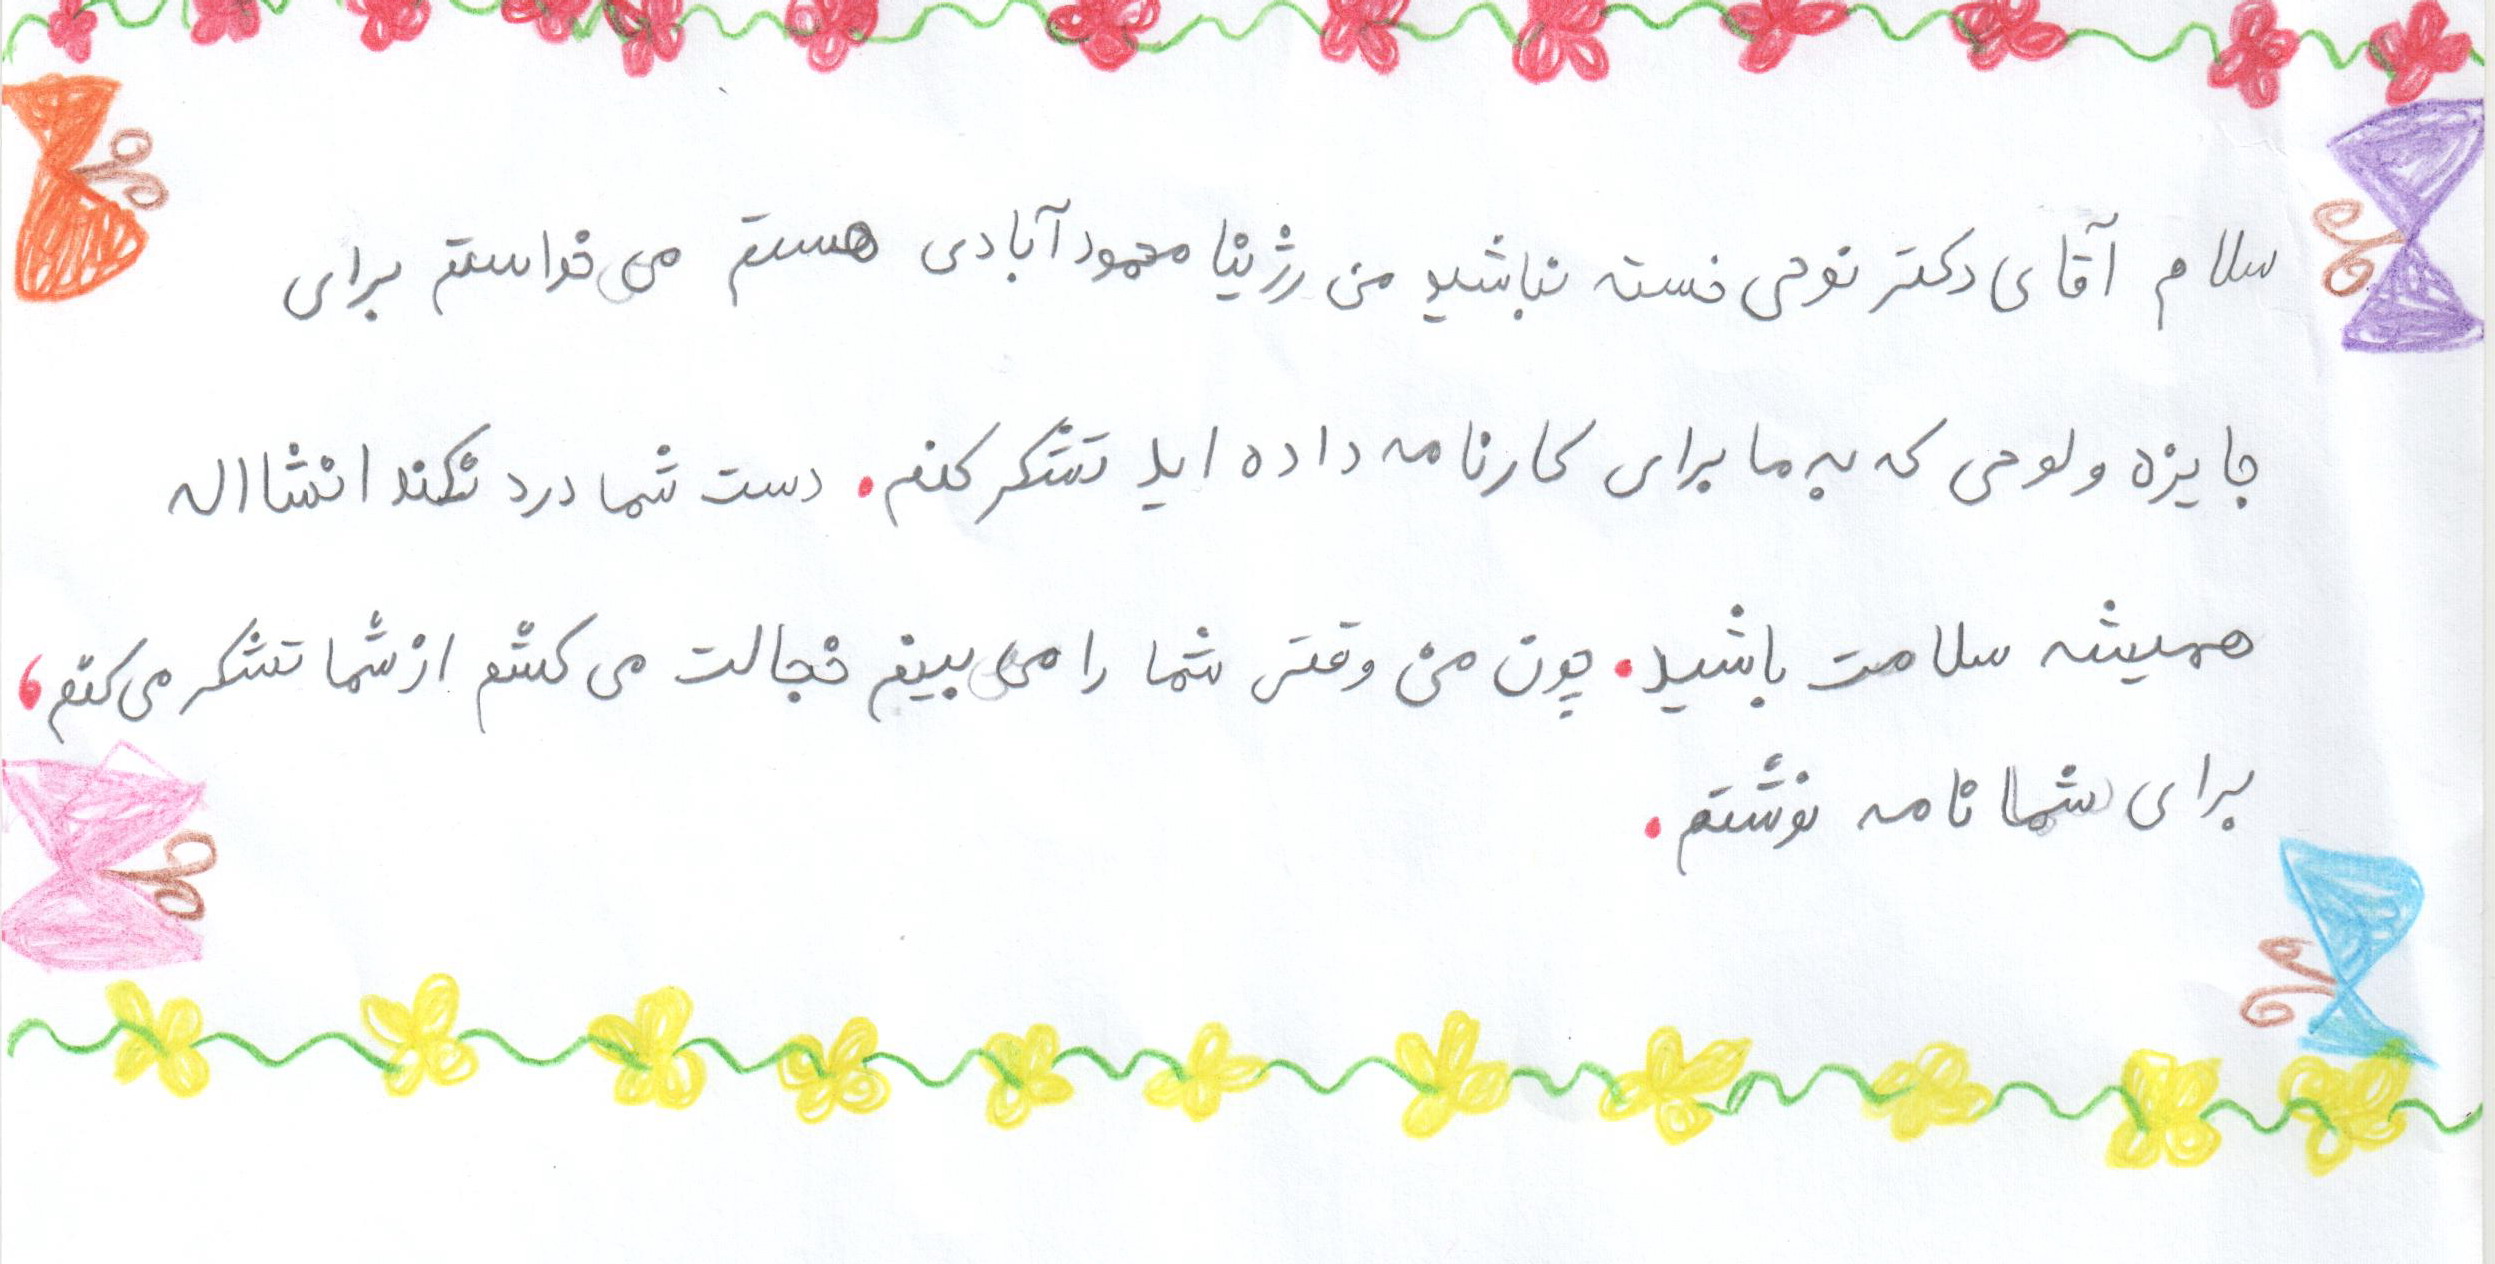 سلام آقای دکتر نوحی خسته نباشید من رژینا محمودآبادی هستم می خواستم برای
جایزه و لوحی که به ما برای کارنامه داده اید تشکر کنم. دست شما درد نکند انشااله
همیشه سلامت باشید. چون من وقتی شما را می بینم خجالت می کشم از شما تشکر می کنم،
برای شما نامه نوشتم.